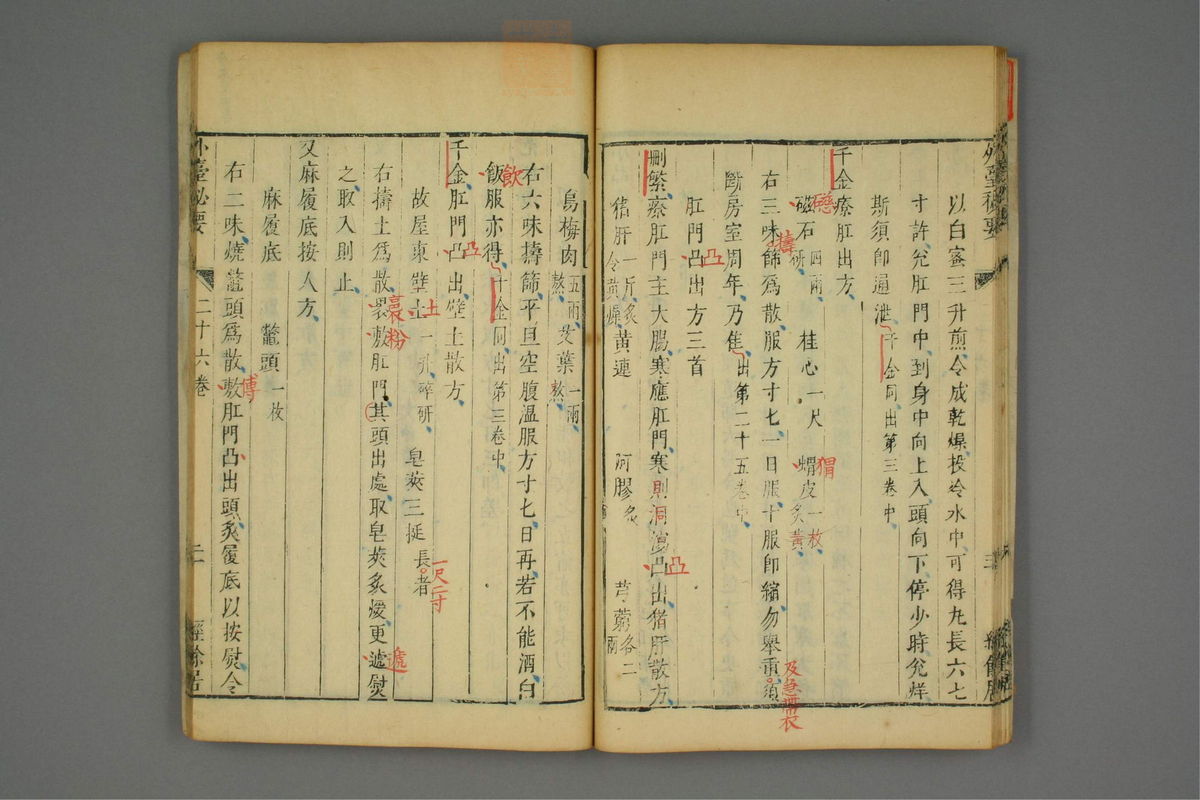 以白蜜三升煎令成乾燥投冷水中可得丸長六七
寸許兊肛門中到身中向上入頭向下停少時兊烊
斯須卽通泄千金同出第三卷中
千金療肛出方
磁石四兩研 桂心一尺 蝟皮一枚炙黃
右三味篩爲散服方寸匕一日服十服卽縮勿舉重須
斷房室周年乃佳出第二十五卷中
肛門凸出方三首
刪繁療肛門主大腸寒應肛門寒則洞瀉凸出猪肝散方
猪肝一斤炙令黃燥 黃連 阿膠炙 芎藭各二兩
烏梅肉五兩熬 艾葉一兩熬
右六味擣篩平旦空腹溫服方寸匕日再若不能酒白
飯服亦得千金同出第三卷中
千金肛門凸出壁土散方
故屋東壁土一升碎研 皂莢三挺長者
右擣土爲散裛敷肛門其頭出處取皂莢炙煖更遞熨
之取入則止
又麻履底按人方
麻履底 鼈頭一枚
右二味燒鼈頭爲散敷肛門凸出頭炙履底以按熨令
外臺秘要 二十六卷
磁
擣
猬
及急帶衣
凸
凸
飲
凸
土
一尺二寸
裛粉
遞
傅